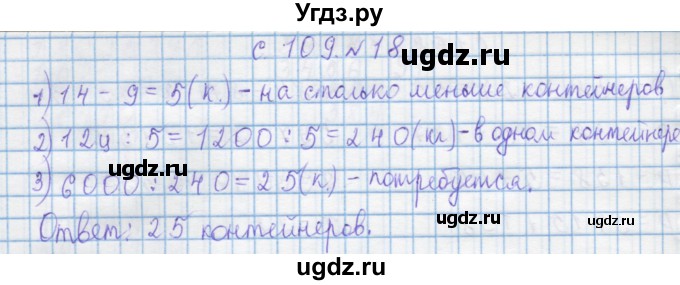 Угдз.ру
с 109 № 18
ugdz.ru
1) 14 - 9 = 5 (к.) - на столько меньше контейнеров
ugdz.ru
2) 12ц : 5 = 1200 : 5 = 240 (кг) - в одном контейнере
ugdz.ru
3) 6000 : 240 = 25 (к.) - потребуется.
ugdz.ru
ugdz.ru
Ответ: 25 контейнеров.
ugdz.ru
ugdz.ru